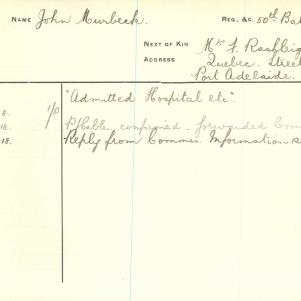 NAME John Murbeck. REG. &C. 50th Bat
NEXT OF KIN Mr F. Rashleig
ADDRESS Quebec. Street
Port Adelaide.
8. 1/0 "Admitted Hospital etc".
18. P/Cable confirmed - forwarded Com
18. Reply from Commn. Information s